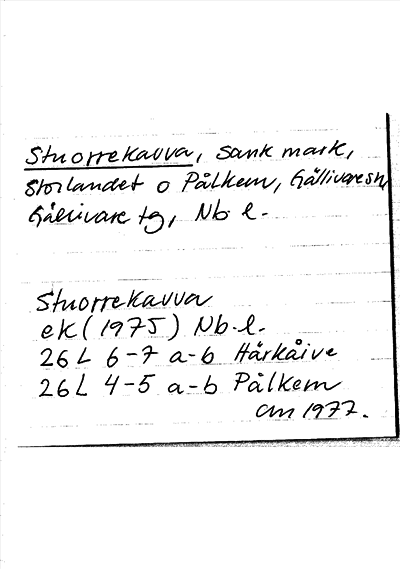 Stuorrekavva, sank mark,
Storlandet o Pålkem, Gällivare sn,
Gällivare tg, Nb l.
Stuorrekavva
ek (1975) Nb.l.
26L 6-7 a-b Härkåive
26L 4-5 a-b Pålkem
am 1977.